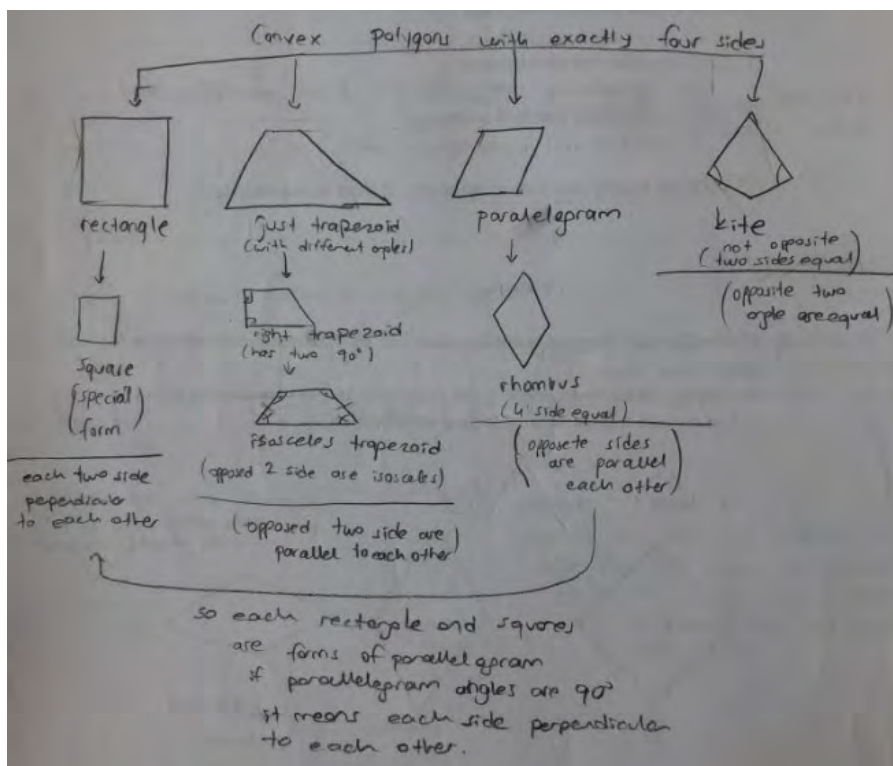 Convex polygons with exactly four sides
rectangle
square
(special
form)
each two side
pependicular
to each other
just trapezoid
(with different agles)
right trapezoid
(has two 90°)
isosceles trapezoid
(opposed 2 side are isoscales)
(opposed two side are
parallel to each other)
paralelegram
rhombus
(4 side equal)
(opposete sides
are parallel
each other)
kite
(not opposite
two sides equal)
(opposite two
agle are equal)
so each rectangle and squares
are forms of parallelgram
if parallelegram angles are 90°
it means each side perpendicular
to each other.